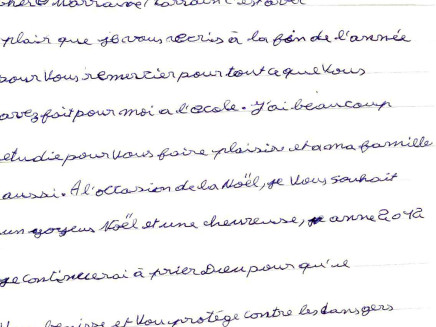 plair que je vous ecris à la fin de l'année
pour vous remercier pour tout ce que vous
avez fait pour moi a l'ecole. J'ai beaucoup
etudie pour vous faire plaisir et a ma famille
aussi. A l'occasion de la Noël, je vous souhait
un Noël et une cheureuse, anne 2012
je continuerai à prier Dieu pour qu'il
et vous protége contre les dangers